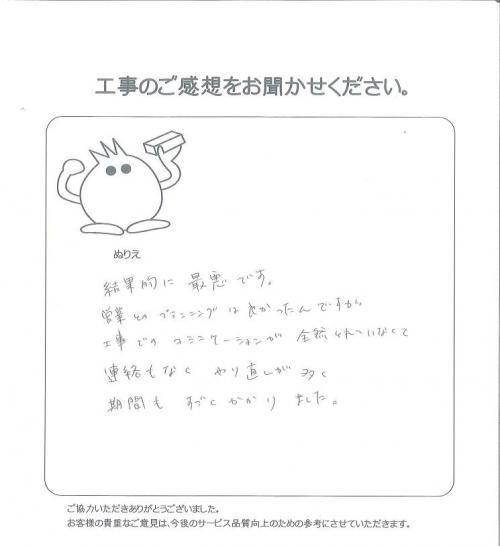 工事のご感想をお聞かせください。
ぬりえ
結果的に 最悪です。
営業とのプランニングは良かったんですが
工事でのコミニケーションが 全然とれていなくて
連絡もなく やり直しが多く
期間も すごくかかりました。
ご協力いただきありがとうございました。
お客様の貴重なご意見は、今後のサービス品質向上のための参考にさせていただきます。